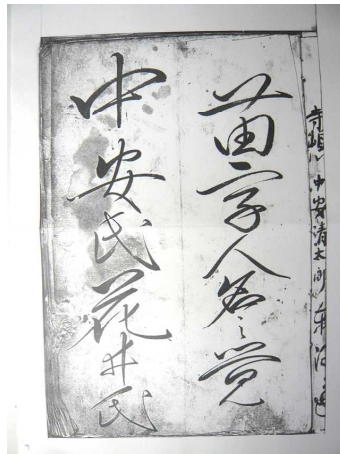 中安清太郎
苗字人名之覚
中安氏花井氏